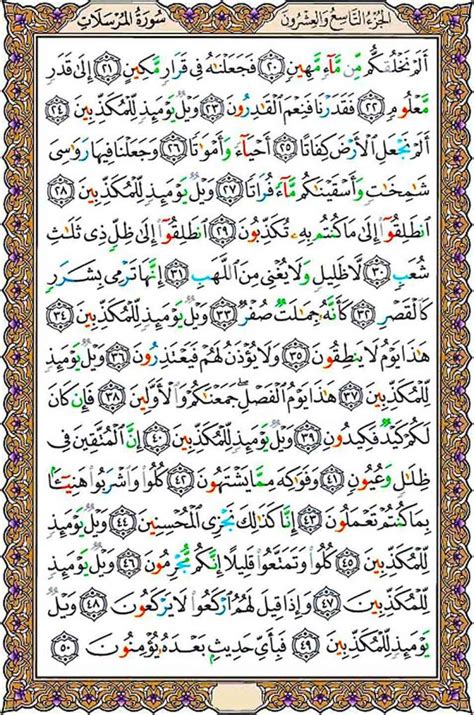 الجزء التاسع والعشرون سورة المرسلات
أَلَمْ نَخْلُقكُّم مِّن مَّآءٍ مَّهِينٍ ٢٠ فَجَعَلْنَٰهُ فِى قَرَارٍ مَّكِينٍ ٢١ إِلَىٰ قَدَرٍ
مَّعْلُومٍ ٢٢ فَقَدَرْنَا فَنِعْمَ ٱلْقَٰدِرُونَ ٢٣ وَيْلٌ يَوْمَئِذٍ لِّلْمُكَذِّبِينَ ٢٤
أَلَمْ نَجْعَلِ ٱلْأَرْضَ كِفَاتًا ٢٥ أَحْيَآءً وَأَمْوَٰتًا ٢٦ وَجَعَلْنَا فِيهَا رَوَٰسِىَ
شَٰمِخَٰتٍ وَأَسْقَيْنَٰكُم مَّآءً فُرَاتًا ٢٧ وَيْلٌ يَوْمَئِذٍ لِّلْمُكَذِّبِينَ ٢٨
ٱنطَلِقُوٓا۟ إِلَىٰ مَا كُنتُم بِهِۦ تُكَذِّبُونَ ٢٩ ٱنطَلِقُوٓا۟ إِلَىٰ ظِلٍّ ذِى ثَلَٰثِ
شُعَبٍ ٣٠ لَّا ظَلِيلٍ وَلَا يُغْنِى مِنَ ٱللَّهَبِ ٣١ إِنَّهَا تَرْمِى بِشَرَرٍ
كَٱلْقَصْرِ ٣٢ كَأَنَّهُۥ جِمَٰلَتٌ صُفْرٌ ٣٣ وَيْلٌ يَوْمَئِذٍ لِّلْمُكَذِّبِينَ ٣٤
هَٰذَا يَوْمُ لَا يَنطِقُونَ ٣٥ وَلَا يُؤْذَنُ لَهُمْ فَيَعْتَذِرُونَ ٣٦ وَيْلٌ يَوْمَئِذٍ
لِّلْمُكَذِّبِينَ ٣٧ هَٰذَا يَوْمُ ٱلْفَصْلِ ۖ جَمَعْنَٰكُمْ وَٱلْأَوَّلِينَ ٣٨ فَإِن كَانَ
لَكُمْ كَيْدٌ فَكِيدُونِ ٣٩ وَيْلٌ يَوْمَئِذٍ لِّلْمُكَذِّبِينَ ٤٠ إِنَّ ٱلْمُتَّقِينَ فِى
ظِلَٰلٍ وَعُيُونٍ ٤١ وَفَوَٰكِهَ مِمَّا يَشْتَهُونَ ٤٢ كُلُوا۟ وَٱشْرَبُوا۟ هَنِيٓـًٔۢا
بِمَا كُنتُمْ تَعْمَلُونَ ٤٣ إِنَّا كَذَٰلِكَ نَجْزِى ٱلْمُحْسِنِينَ ٤٤ وَيْلٌ يَوْمَئِذٍ
لِّلْمُكَذِّبِينَ ٤٥ كُلُوا۟ وَتَمَتَّعُوا۟ قَلِيلًا إِنَّكُم مُّجْرِمُونَ ٤٦ وَيْلٌ يَوْمَئِذٍ
لِّلْمُكَذِّبِينَ ٤٧ وَإِذَا قِيلَ لَهُمُ ٱرْكَعُوا۟ لَا يَرْكَعُونَ ٤٨ وَيْلٌ
يَوْمَئِذٍ لِّلْمُكَذِّبِينَ ٤٩ فَبِأَىِّ حَدِيثٍۭ بَعْدَهُۥ يُؤْمِنُونَ ٥٠